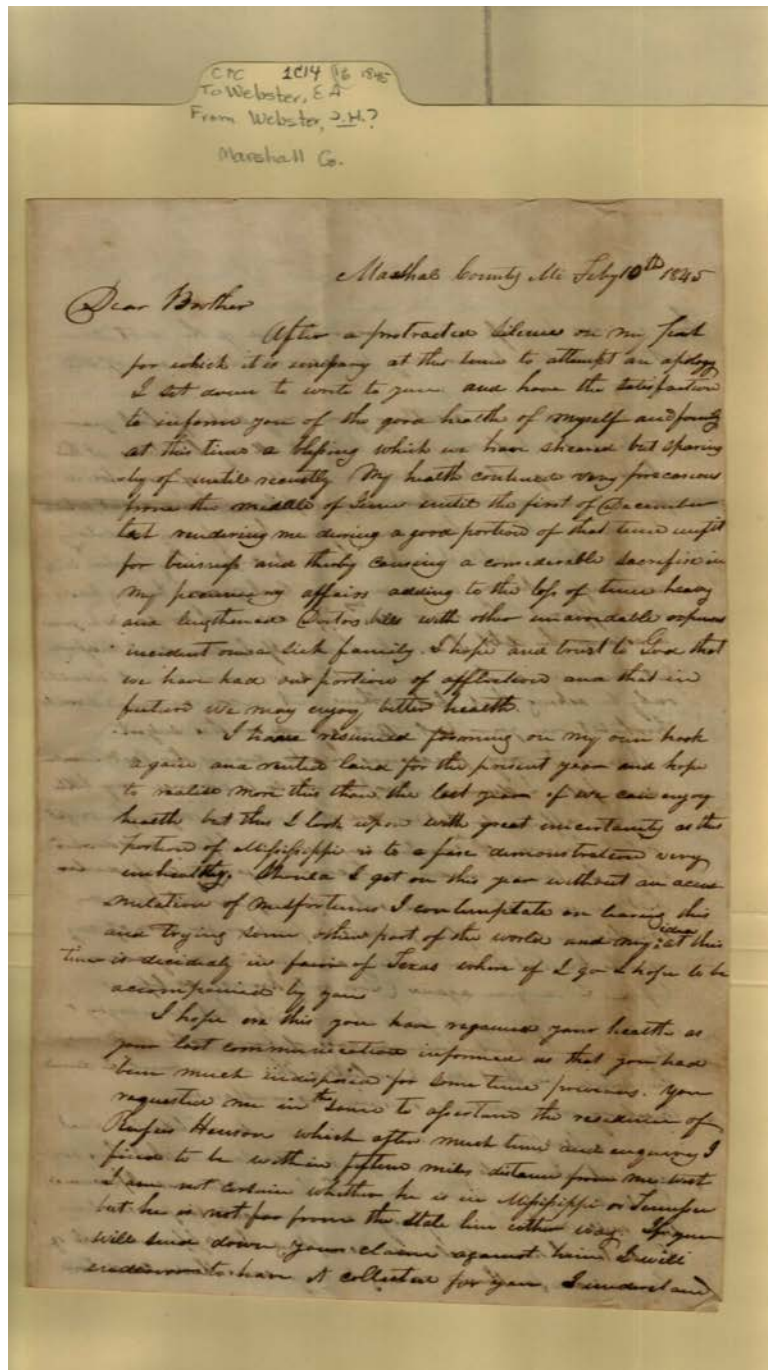 CPC 1C14 1845
To Webster, E A
From Webster, J.H.?
Marshall Co.
Marshal County Mi Feby 10th 1845
Dear Brother
After a protracted silence on my part
for which it is at this time to attempt an apology
I set down to write to you and have the satisfaction
to inform you of the good health of myself and family
at this time a blessing which we have sheared but sparing
ly of until recently My health continued very precarious
from the middle of June until the first of December
last rendering me during a good portion of that time unfit
for business and thereby causing a considerable sacrifise in
my pecuniary affairs adding to the loss of time heavy
and lengthened Doctors bills with other unavoidable expenses
incident on a sick family. I hope and trust to God that
we have had our portion of affliction and that in
future we may enjoy better health.
I have resumed farming on my own hook
again and rented land for the present year and hope
to realise more this than the last year if we can enjoy
health but this I look upon with great uncertainty as this
portion of Mississippi is to a fare demonstration very
unhealthy. Should I get on this year without an accu
mulation of misfortunes I contemplate on leaving this
and trying some other part of the world and my idea at this
time is decidedly in favor of Texas where if I go I hope to be
accompanied by you
I hope ere this you have regained your health as
your last communication informed us that you had
been much indisposed for some time previous. You
requested me in the same to assertane the residence of
Rufus Henson which after much time and enquiry I
find to be within fifteen miles distance from me west
I am not certain whether he is in Mississippi or Tennessee
but he is not far from the state line either way. If you
will send down your claim against him I will
endeavour to have it collected for you. I understand